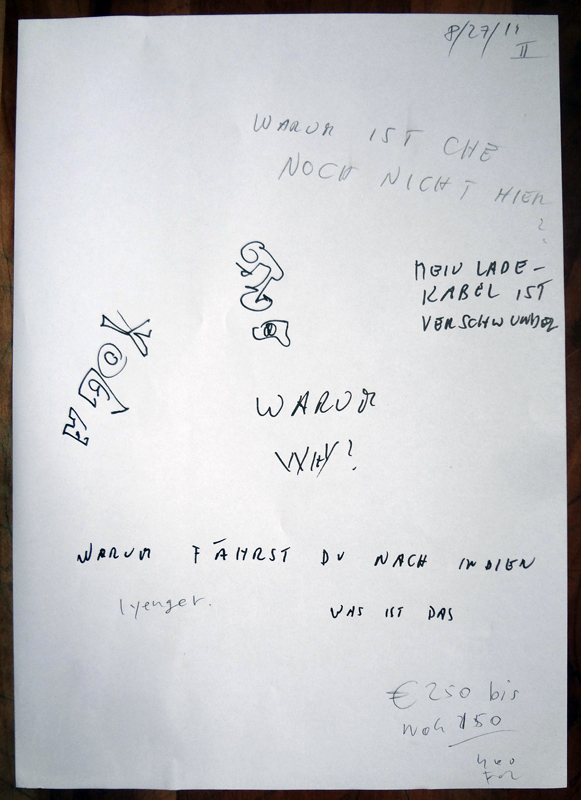 8/27/11
II
WARUM IST CHE
NOCH NICHT HIER
?
MEIN LADE-
KABEL IST
VERSCHWUNDEN
YOGA
WARUM
WHY?
WARUM FÄHRST DU NACH INDIEN
Iyenger.
WAS IST DAS
€ 250 bis
noch 150